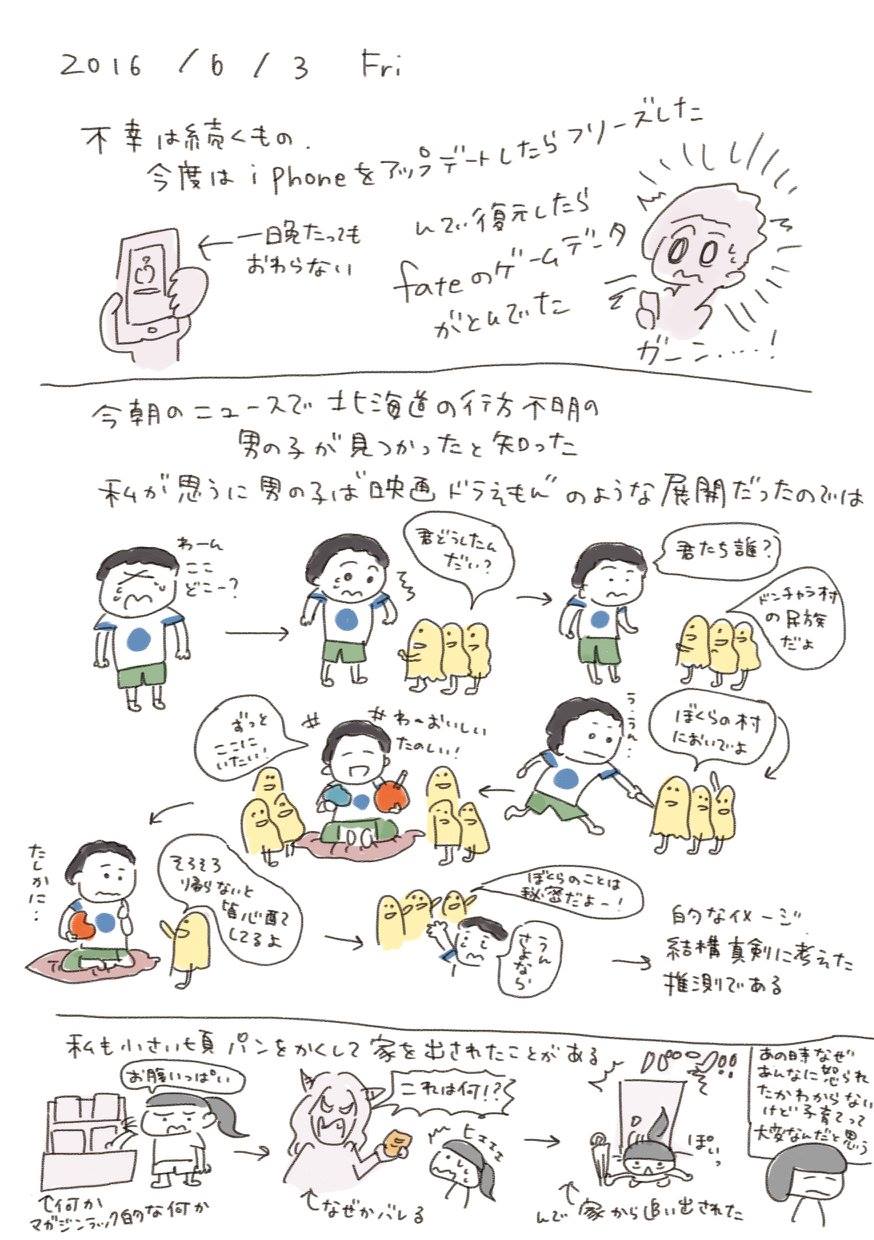 2016 / 6 / 3 Fri
不幸は続くもの.
今度は iPhoneをアップデートしたらフリーズした
←一晩たっても
おわらない
んで復元したら
fateのゲームデータ
がとんでた
ガーン....!
今朝のニュースで北海道の行方不明の
男の子が見つかったと知った
私が思うに男の子は"映画ドラえもん"のような展開だったのでは
わーん
ここ
どこー?
君どうしたん
だい?
君たち誰?
ドンチャラ村
の民族
だよ
ぼくらの村
においでよ
う、うん…
わ〜おいしい
たのしい!
ずっと
ここに
いたい!
そろそろ
帰らないと
皆心配
してるよ
たしかに…
ぼくらのことは
秘密だよー!
うん
さよなら
的なイメージ.
結構真剣に考えた
推測である
私も小さい頃パンをかくして家を出されたことがある
お腹いっぱい
↑何か
マガジンラック的な何か
これは何!?
ヒエエエ
↑なぜかバレる
ぽいっ
↑
んで家から追い出された
あの時なぜ
あんなに怒られ
たかわからない
けど子育てって
大変なんだと思う